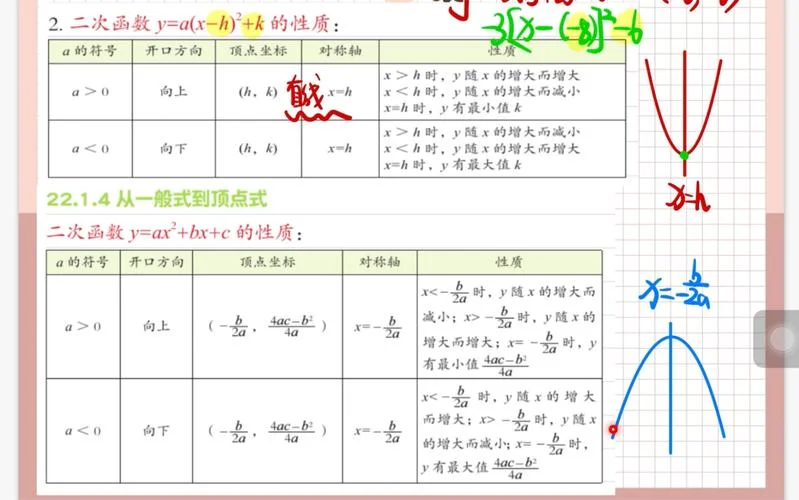 -3[x-(-8)]²-6
2. 二次函数 y=a(x-h)²+k 的性质：
a 的符号 开口方向 顶点坐标 对称轴 性质
a＞0 向上 (h，k) 直线 x=h
x＞h 时，y 随 x 的增大而增大
x＜h 时，y 随 x 的增大而减小
x=h 时，y 有最小值 k
a＜0 向下 (h，k) x=h
x＞h 时，y 随 x 的增大而减小
x＜h 时，y 随 x 的增大而增大
x=h 时，y 有最大值 k
x=h
22.1.4 从一般式到顶点式
二次函数 y=ax²+bx+c 的性质：
a 的符号 开口方向 顶点坐标 对称轴 性质
a＞0 向上 (-b/2a，4ac-b²/4a) x=-b/2a
x<-b/2a 时，y 随 x 的增大而
减小；x>-b/2a 时，y 随 x 的
增大而增大；x=-b/2a 时，y
有最小值 4ac-b²/4a
a＜0 向下 (-b/2a，4ac-b²/4a) x=-b/2a
x<-b/2a 时，y 随 x 的 增 大
而增大；x>-b/2a 时，y 随 x
的增大而减小；x=-b/2a 时，
y 有最大值 4ac-b²/4a
x=b/-2a